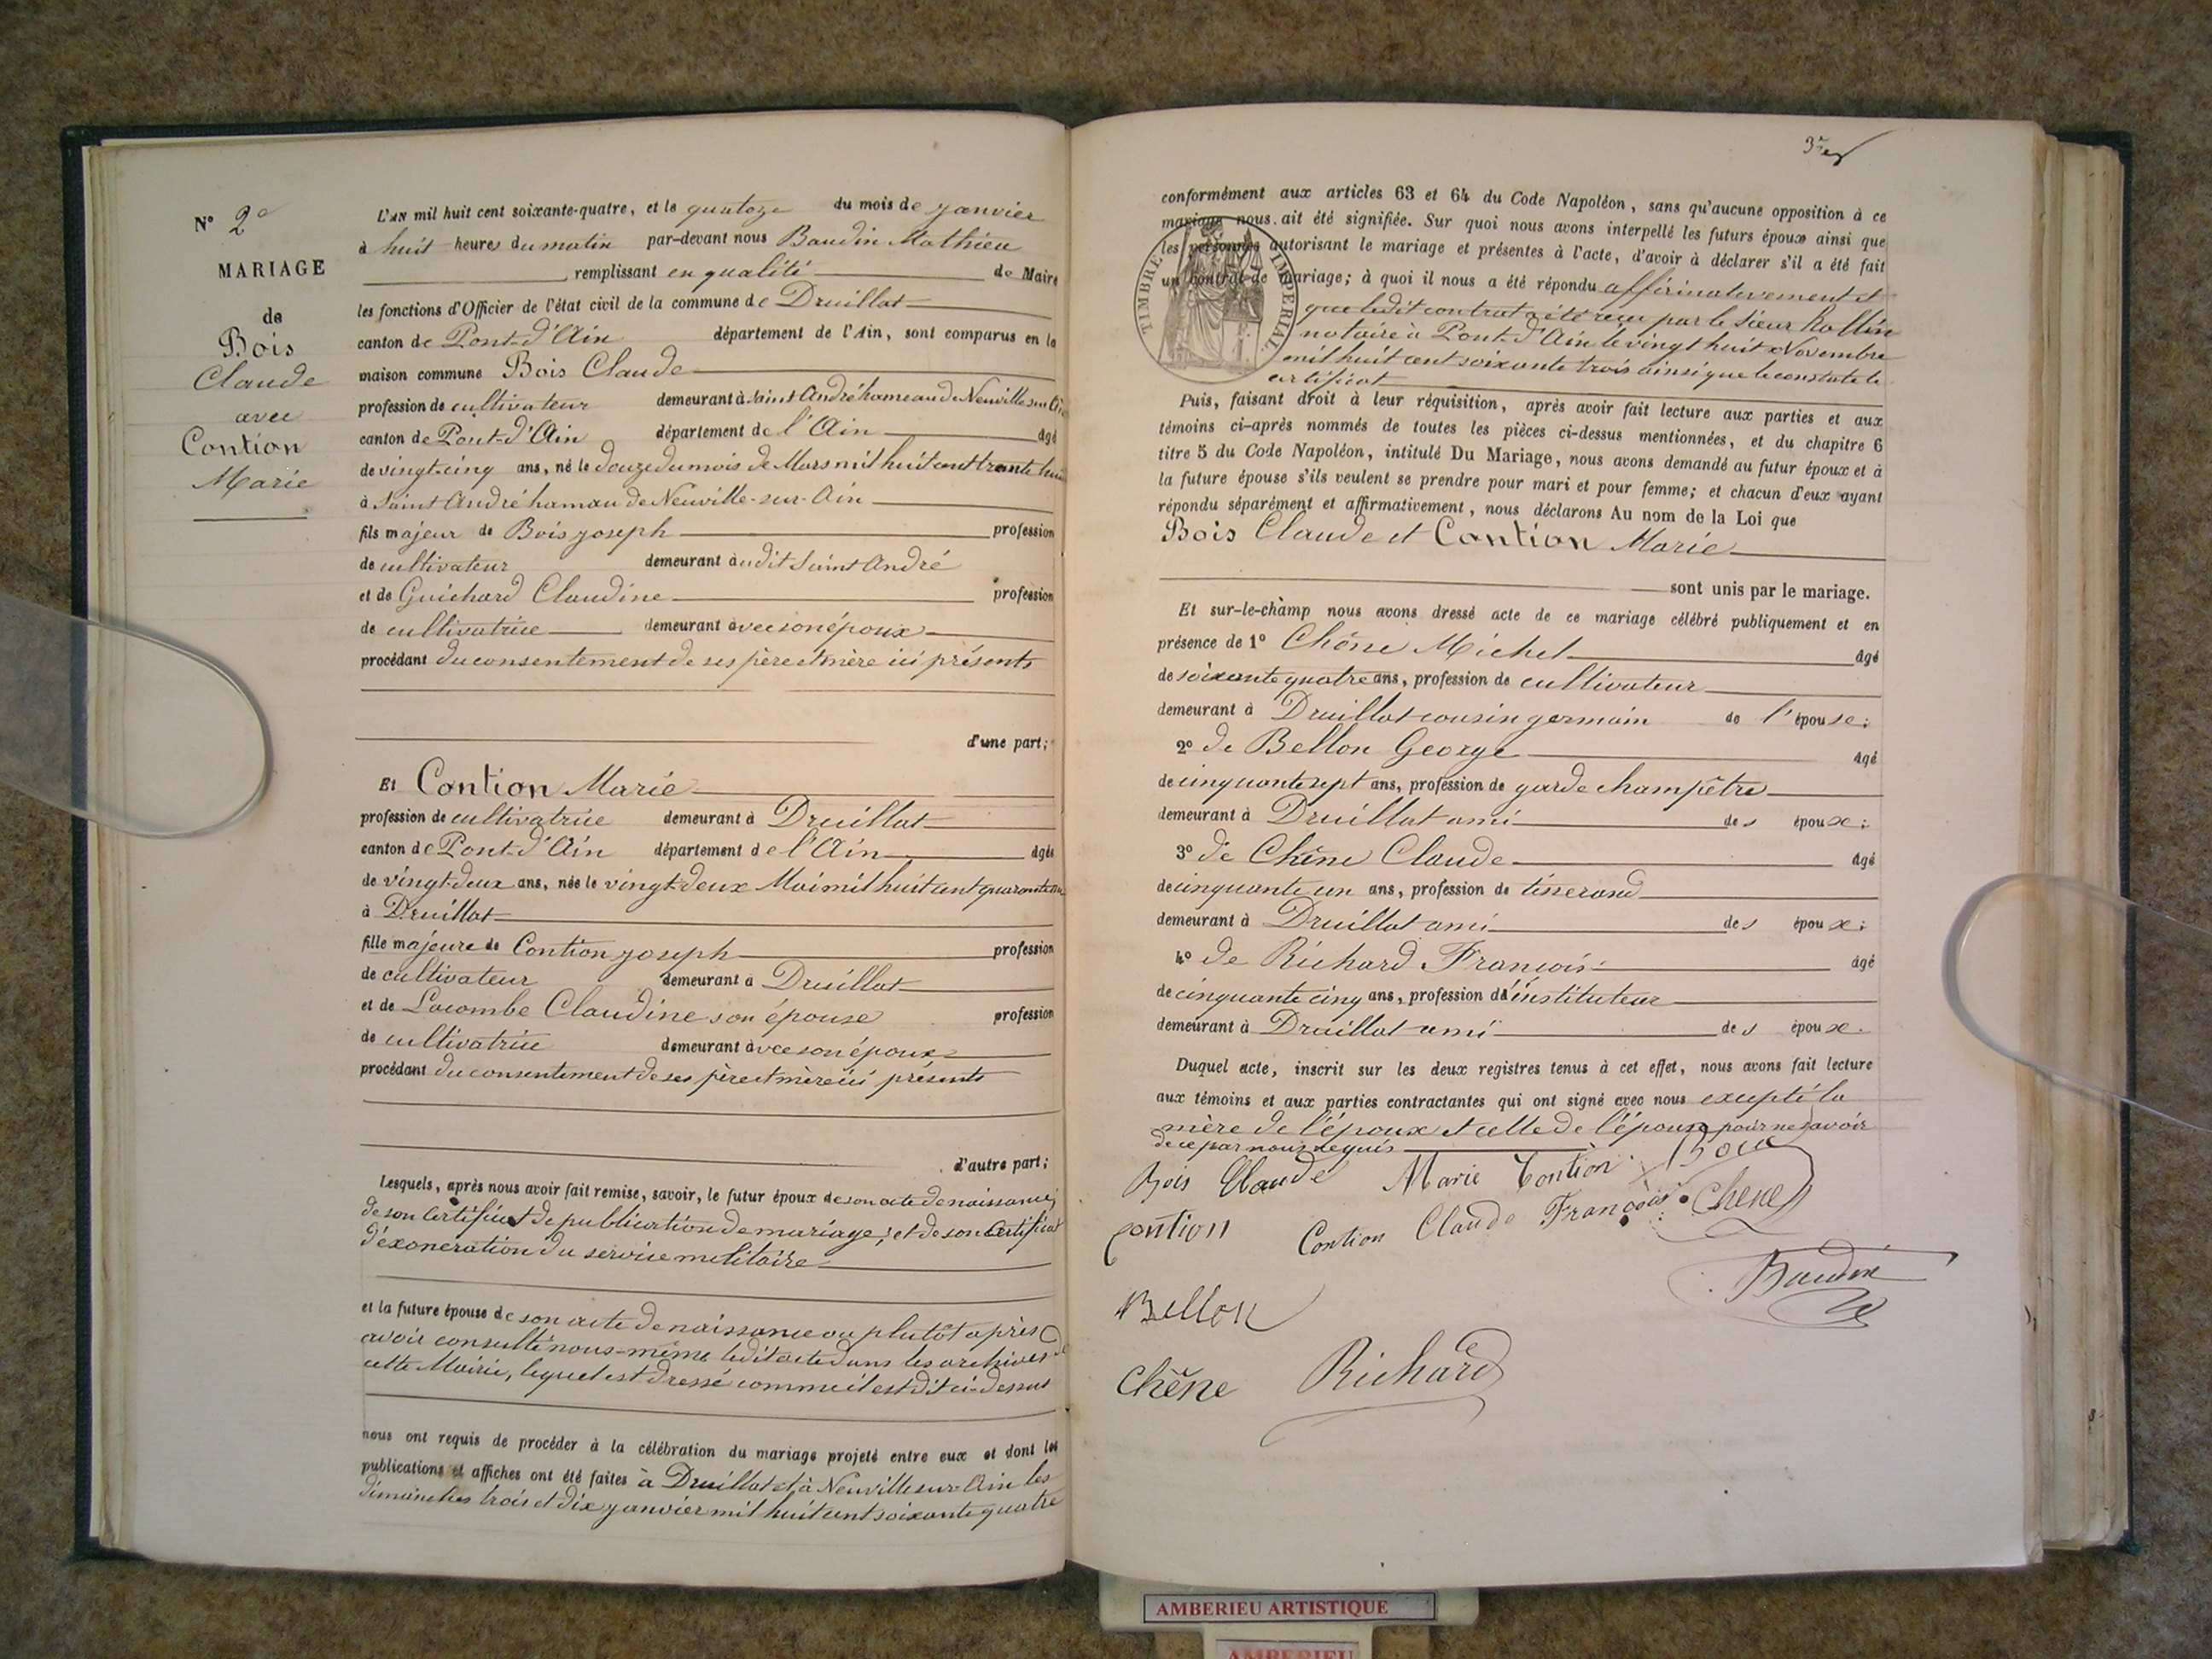 N° 2e
MARIAGE
de
Bois
Claude
avec
Contion
Marie
L'AN mil huit cent soixante-quatre, et le quatoze du mois de janvier
à huit heures du matin par-devant nous Baudin Mathieu
remplissant en qualité de Maire
les fonctions d'Officier de l'état civil de la commune de Druillat
canton de Pont-d'Ain département de l'Ain, sont comparus en la
maison commune Bois Claude
profession de cultivateur demeurant à Saint André hameau de Neuville sur Ain
canton de Pont-d'Ain département de l'Ain âgé
de vingt-cinq ans, né le douze du mois de Mars mil huit cent trente huit
à Saint André hamau de Neuville-sur-Ain
fils majeur de Bois joseph profession
de cultivateur demeurant audit Saint André
et de Guichard Claudine profession
de cultivatrice demeurant avec son époux
procédant du consentement de ses père et mère ici présents
d'une part;
Et Contion Marie
profession de cultivatrice demeurant à Druillat
canton de Pont-d'Ain département de l'Ain âgée
de vingt-deux ans, née le vingt-deux Mai mil huit cent quarante un
à Druillat
fille majeure de Contion joseph profession
de cultivateur demeurant à Druillat
et de Lacombe Claudine son épouse profession
de cultivatrice demeurant avec son époux
procédant du consentement de ses père et mère ici présents
d'autre part;
Lesquels, après nous avoir fait remise, savoir, le futur époux de son acte de naissance;
de son Certificat de publication de mariage; et de son Certificat
d'éxoneration du service militaire
et la future épouse de son acte de naissance ou plutôt après
avoir consulté nous-même ledit acte dans les archives de
cette Mairie, lequel est dressé comme il est dit ci-dessus
nous ont requis de procéder à la célébration du mariage projeté entre eux et dont les
publications et affiches ont été faites à Druillat et à Neuville sur-Ain les
dimanches trois et dix janvier mil huit cent soixante quatre
3e
conformément aux articles 63 et 64 du Code Napoléon, sans qu'aucune opposition à ce
mariage nous ait été signifiée. Sur quoi nous avons interpellé les futurs époux ainsi que
les personnes autorisant le mariage et présentes à l'acte, d'avoir à déclarer s'il a été fait
un contrat de mariage; à quoi il nous a été répondu affirmativement et
que ledit contrat a été reçu par le sieur Rollin
notaire à Pont-d'Ain le vingt huit Novembre
mil huit cent soixante trois ainsi que le constate le
certificat
TIMBRE IMPERIAL
Puis, faisant droit à leur réquisition, après avoir fait lecture aux parties et aux
témoins ci-après nommés de toutes les pièces ci-dessus mentionnées, et du chapitre 6
titre 5 du Code Napoléon, intitulé Du Mariage, nous avons demandé au futur époux et à
la future épouse s'ils veulent se prendre pour mari et pour femme; et chacun d'eux ayant
répondu séparément et affirmativement, nous déclarons Au nom de la Loi que
Bois Claude et Contion Marie
sont unis par le mariage.
Et sur-le-champ nous avons dressé acte de ce mariage célébré publiquement et en
présence de 1° Chêne Michel âgé
de soixante quatre ans, profession de cultivateur
demeurant à Druillat cousin germain de l'épouse;
2° de Bellon George âgé
de cinquante sept ans, profession de garde champêtre
demeurant à Druillat ami des époux;
3° de Chêne Claude âgé
de cinquante un ans, profession de tisserand
demeurant à Druillat ami des époux;
4° de Richard François âgé
de cinquante cinq ans, profession d'instituteur
demeurant à Druillat ami des époux.
Duquel acte, inscrit sur les deux registres tenus à cet effet, nous avons fait lecture
aux témoins et aux parties contractantes qui ont signé avec nous excepté la
mère de l'époux et celle de l'épouse pour ne savoir
de ce par nous requis
Bois Claude Marie Contion Bois
Contion Contion Claude François Chene
Baudin
Bellon
Chêne Richard
AMBERIEU ARTISTIQUE
AMBERIEU